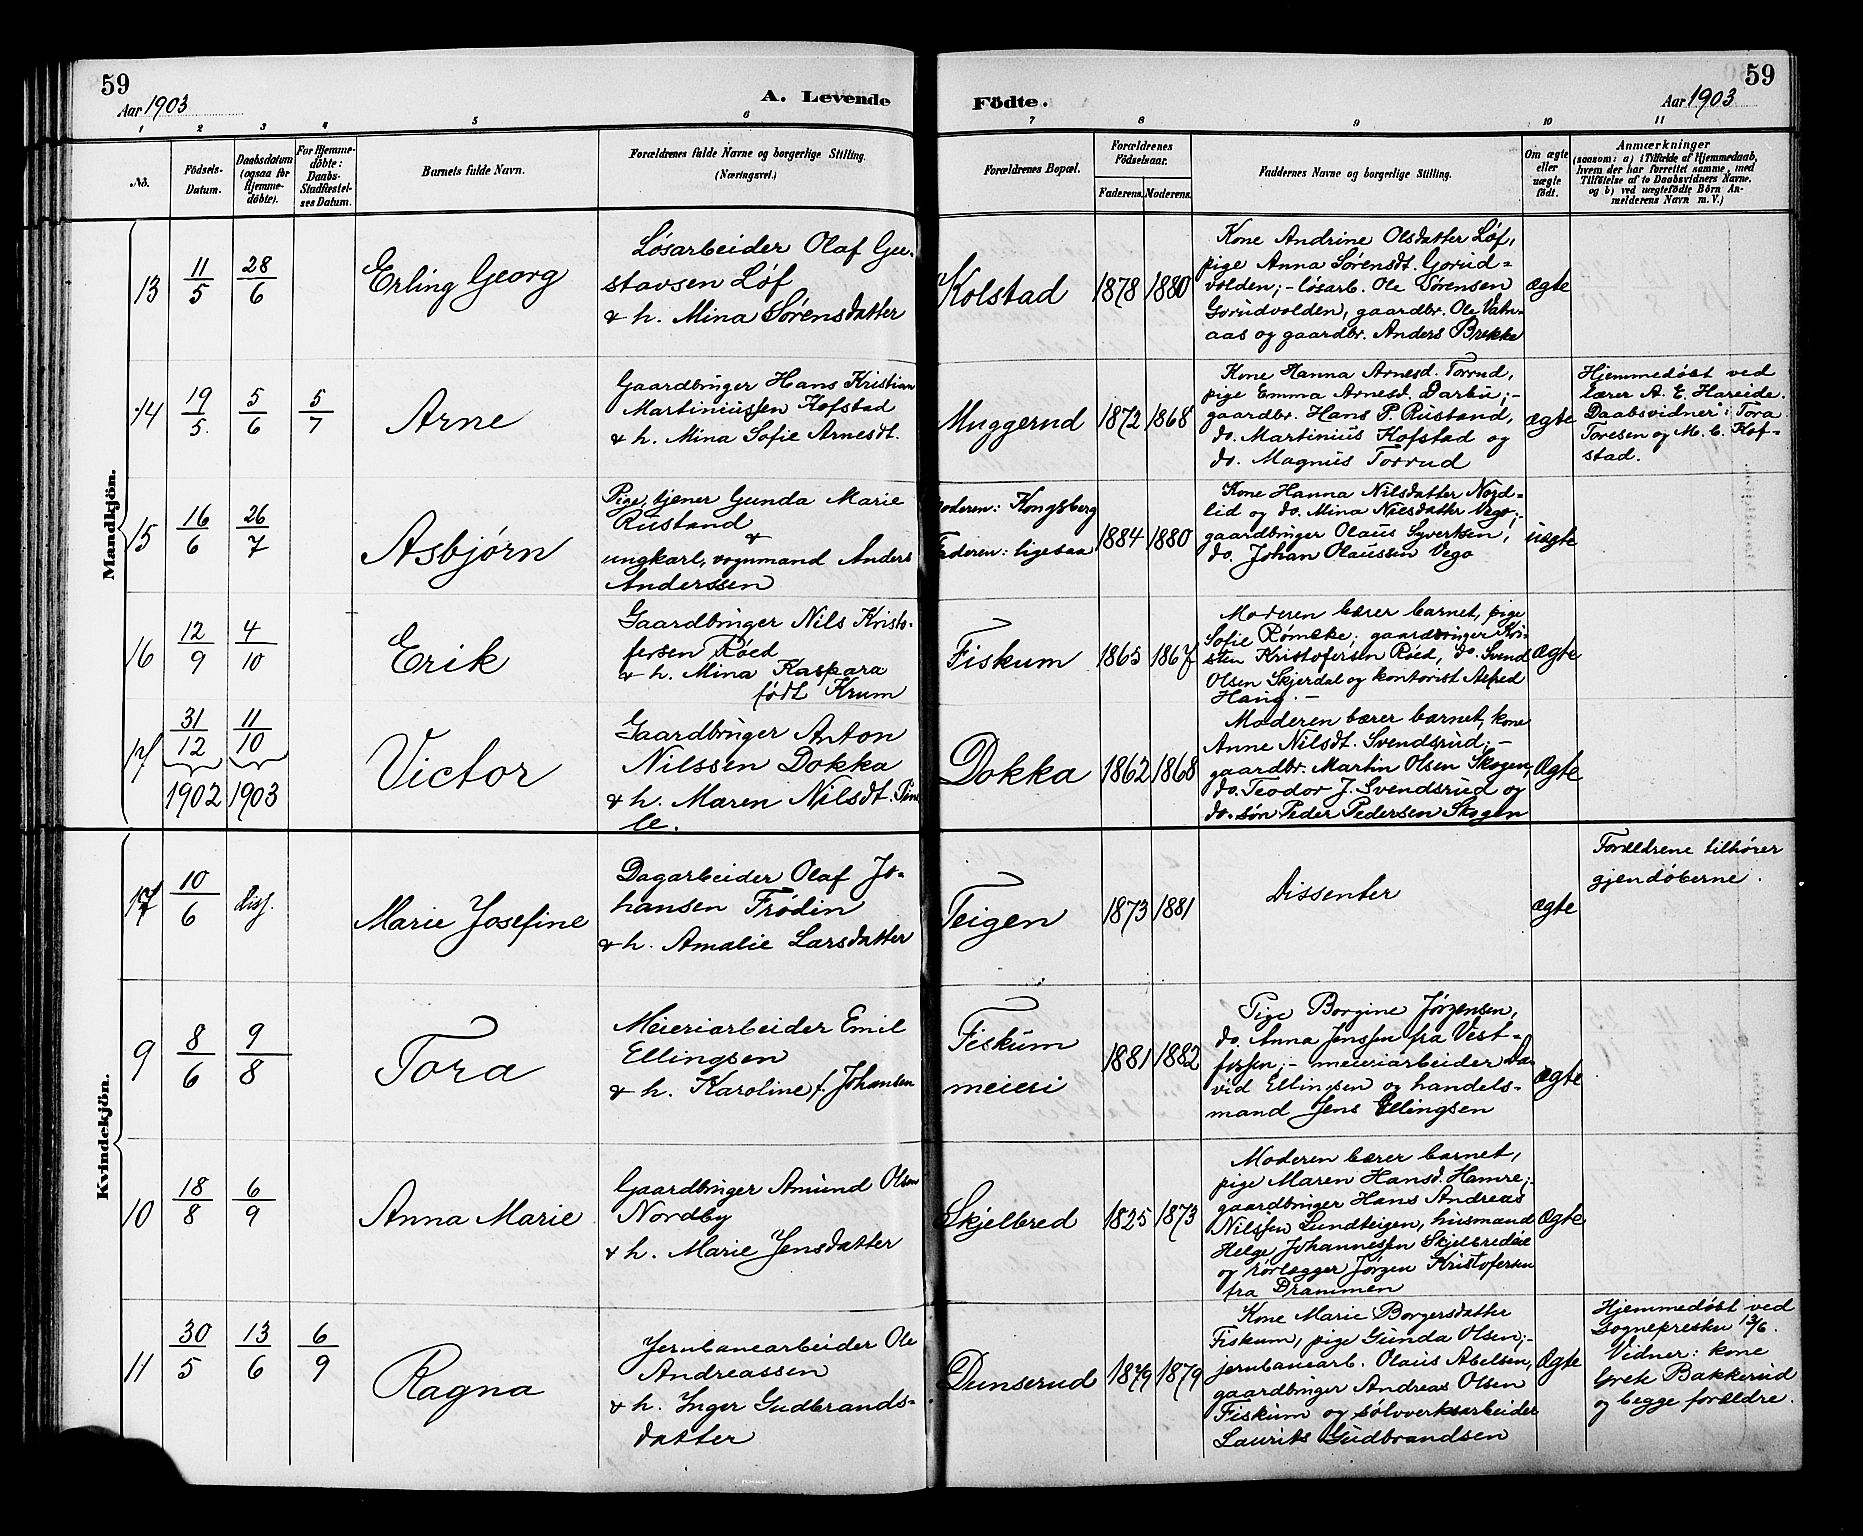 59
Aar 1903
A. Levende
Födte.
59
Aar 1903
1
2
3
4
5
6
7
8
9
10
11
No.
Födsels-
Datum.
Daabsdatum
(ogsaa för
Hjemme-
döbte).
For Hjemme-
döbte:
Daabs-
Stadfæstel-
ses Datum.
Barnets fulde Navn.
Forældrenes fulde Navne og borgerlige Stilling.
(Næringsvei.)
Forældrenes Bopæl.
Forældrenes
Födselsaar.
Faderens.
Moderens.
Faddernes Navne og borgerlige Stilling.
Om ægte
eller
uægte
födt.
Anmærkninger
(saasom: a) i Tilfælde af Hjemmedaab,
hvem der har forrettet samme, med
Tilföielse af to Daabsvidners Navne.
og b) ved uægtefödte Börn An-
melderens Navn m. V.)
Mandkjön.
13
11/5
28/6
Erling Georg
Løsarbeider Olaf Gu-
stavsen Løf
& h. Mina Sørensdatter
Kolstad
1878
1880
Kone Andrine Olsdatter Løf,
pige Anna Sørensdt. Gorud-
volden; - løsarb. Ole Sørensen
Gorudvolden, gaardbr. Ole Vatn-
aas og gaardbr. Anders Brekke
ægte
14
19/5
5/6
5/7
Arne
Gaardbruger Hans Kristian
Martiniussen Hofstad
& h. Mina Sofie Arnesdt.
Muggerud
1872
1868
Kone Hanna Arnesd. Torrud,
pige Emma Arnesd. Darbu; -
gaardbr. Hans P. Rustand,
do. Martinius Hofstad og
do. Magnus Torrud
ægte
Hjemmedøbt ved
lærer A. E. Hareide.
Daabsvidner: Tora
Toresen og M. C. Hof-
stad.
15
16/6
26/7
Asbjørn
Pige, tjener Gunda Marie
Rustand
&
ungkarl, vognmand Anders
Anderssen
Moderen: Kongsberg
Faderen: ligesaa
1884
1880
Kone Hanna Nilsdatter Nord-
lid og do. Mina Nilsdatter Vego; -
gaardbruger Olaus Syvertsen,
do. Johan Olaussen Vego
uægte
16
12/9
4/10
Erik
Gaardbruger Nils Kristo-
fersen Røed
& h. Mina Kaspara
født Krum
Fiskum
1865
1867
Moderen bærer barnet, pige
Sofie Rømcke; gaardbruger Kri-
sten Kristofersen Røed, do. Svend
Olsen Skjerdal og kontorist Alfred
Haug. -
Ægte
17
31/12
1902
11/10
1903
Victor
Gaardbruger Anton
Nilssen Dokka
& h. Maren Nilsdt.
Dokka
1862
1868
Moderen bærer barnet, kone
Anne Nilsdt. Svendsrud; -
gaardbr. Martin Olsen Skogen,
do. Teodor J. Svendsrud og
do. søn Peder Pedersen Skogen
Ægte
Kvindekjön.
17
10/6
diss.
Marie Josefine
Dagarbeider Olaf Jo-
hansen Frødin
& h. Amalie Larsdatter
Teigen
1873
1881
Dissenter
ægte
Forældrene tilhører
gjendøberne.
9
8/6
9/8
Tora
Meieriarbeider Emil
Ellingsen
& h. Karoline f. Johansen
Fiskum
meieri
1881
1882
Pige Borgine Jørgensen,
do. Anna Jenssen fra Vest-
fossen; - meieriarbeider Da-
vid Ellingsen og handels-
mand Jens Ellingsen
ægte
10
18/8
6/9
Anna Marie
Gaardbruger Amund Olsen
Nordby
& h. Marie Jensdatter
Skjelbred
1825
1873
Moderen bærer barnet,
pige Maren Hansd. Hamre;
gaardbruger Hans Andreas
Nilssen Lundteigen, husmand
Helge Johannessen Skjelbredeie
og rørlægger Jørgen Kristofersen
fra Drammen
Ægte
11
30/5
13/6
6/9
Ragna
Jernbanearbeider Ole
Andreassen
& h. Inger Gudbrands-
datter
Dunserud
1879
1879
Kone Marie Borgersdatter
Fiskum, pige Gunda Olsen; -
jernbanearb. Olaus Abelsen,
gaardbruger Andreas Olsen
Fiskum og sølvverksarbeider
Laurits Gudbrandsen
Ægte
Hjemmedøbt ved
Sognepresten 13/6.
Vidner: kone
Grete Bakkerud
og begge forældre.